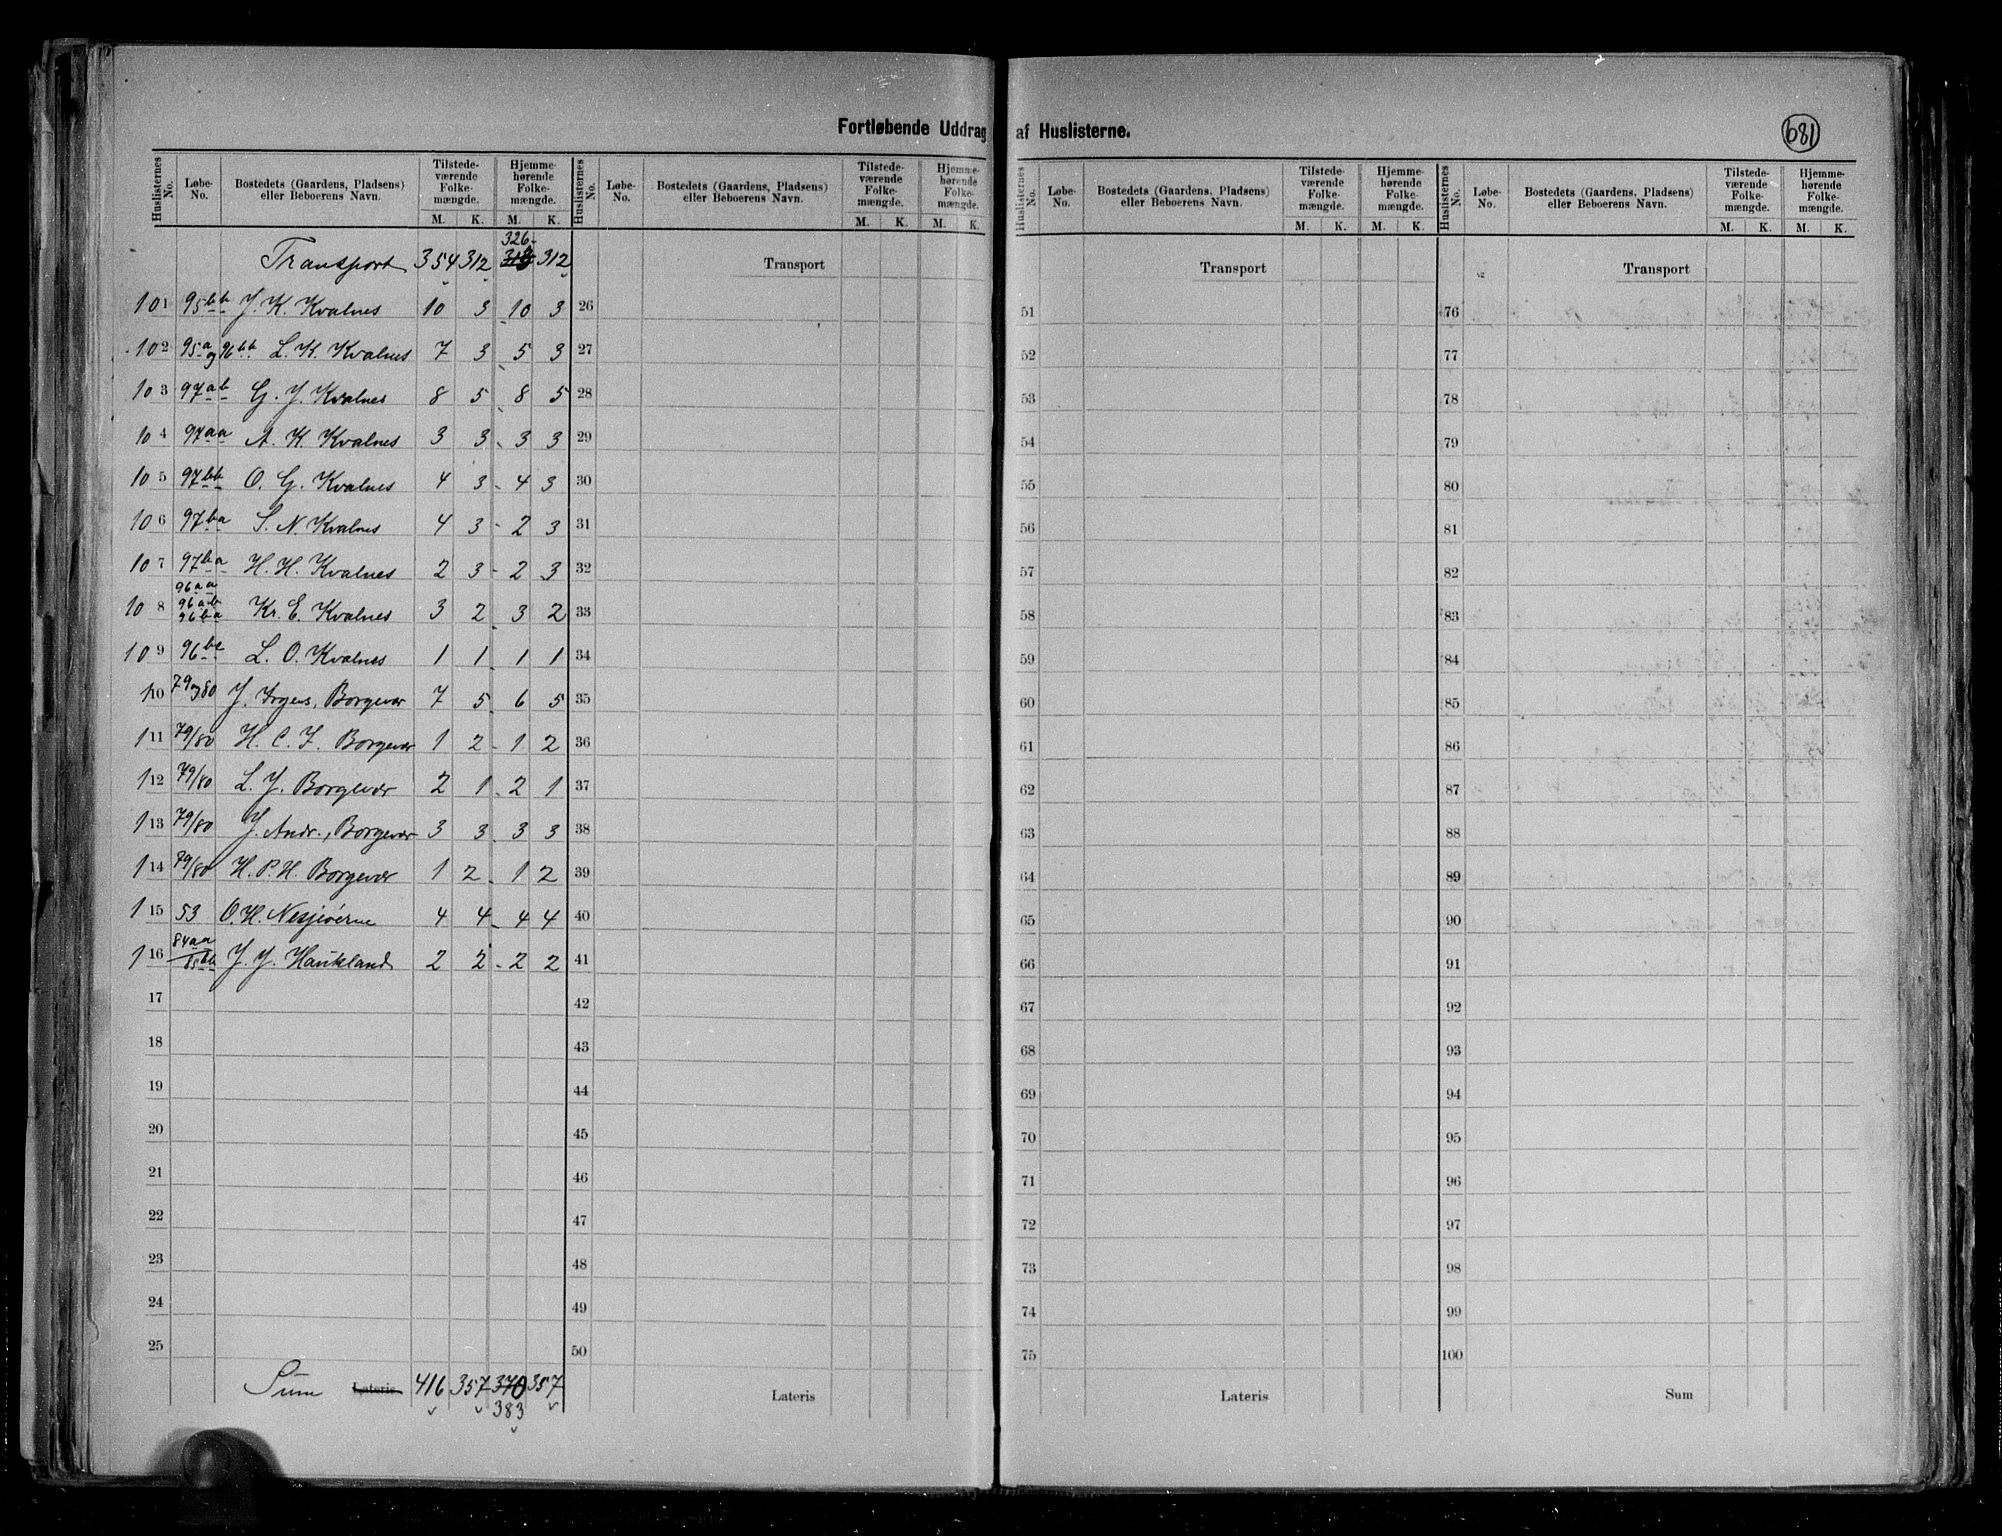 Fortløbende Uddrag af Huslisterne.
681
Huslisternes No. | Løbe-No. | Bostedets (Gaardens, Pladsens) eller Beboerens Navn. | Tilstedeværende Folkemængde. M. K. | Hjemmehørende Folkemængde. M. K.
326
Transport 354 312 312
101 95bb J. K. Kvalnes 10 3 10 3
102 95a og 96bb L. K. Kvalnes 7 3 5 3
103 97ab G. J. Kvalnes 8 5 8 5
104 97aa A. K. Kvalnes 3 3 3 3
105 97bb O. G. Kvalnes 4 3 4 3
106 97ba S. N. Kvalnes 4 3 2 3
107 97ba H. H. Kvalnes 2 3 2 3
108 96aa 96ab 96ba Kr. E. Kvalnes 3 2 3 2
109 96bc L. O. Kvalnes 1 1 1 1
110 79 og 80 J. Irgens, Borgevær 7 5 6 5
111 79/80 H. C. J. Borgevær 1 2 1 2
112 79/80 L. J. Borgevær 2 1 2 1
113 79/80 J. Andr., Borgevær 3 3 3 3
114 79/80 H. P. H. Borgevær 1 2 1 2
115 53 O. H. Nesjeöerne 4 4 4 4
116 84aa/85bb J. J. Haukland 2 2 2 2
17
18
19
20
21
22
23
24
25
Sum Lateris 416 357 370 357
383
Huslisternes No. | Løbe-No. | Bostedets (Gaardens, Pladsens) eller Beboerens Navn. | Tilstedeværende Folkemængde. M. K. | Hjemmehørende Folkemængde. M. K.
Transport
26
27
28
29
30
31
32
33
34
35
36
37
38
39
40
41
42
43
44
45
46
47
48
49
50
Lateris
Huslisternes No. | Løbe-No. | Bostedets (Gaardens, Pladsens) eller Beboerens Navn. | Tilstedeværende Folkemængde. M. K. | Hjemmehørende Folkemængde. M. K.
Transport
51
52
53
54
55
56
57
58
59
60
61
62
63
64
65
66
67
68
69
70
71
72
73
74
75
Lateris
Huslisternes No. | Løbe-No. | Bostedets (Gaardens, Pladsens) eller Beboerens Navn. | Tilstedeværende Folkemængde. M. K. | Hjemmehørende Folkemængde. M. K.
Transport
76
77
78
79
80
81
82
83
84
85
86
87
88
89
90
91
92
93
94
95
96
97
98
99
100
Sum